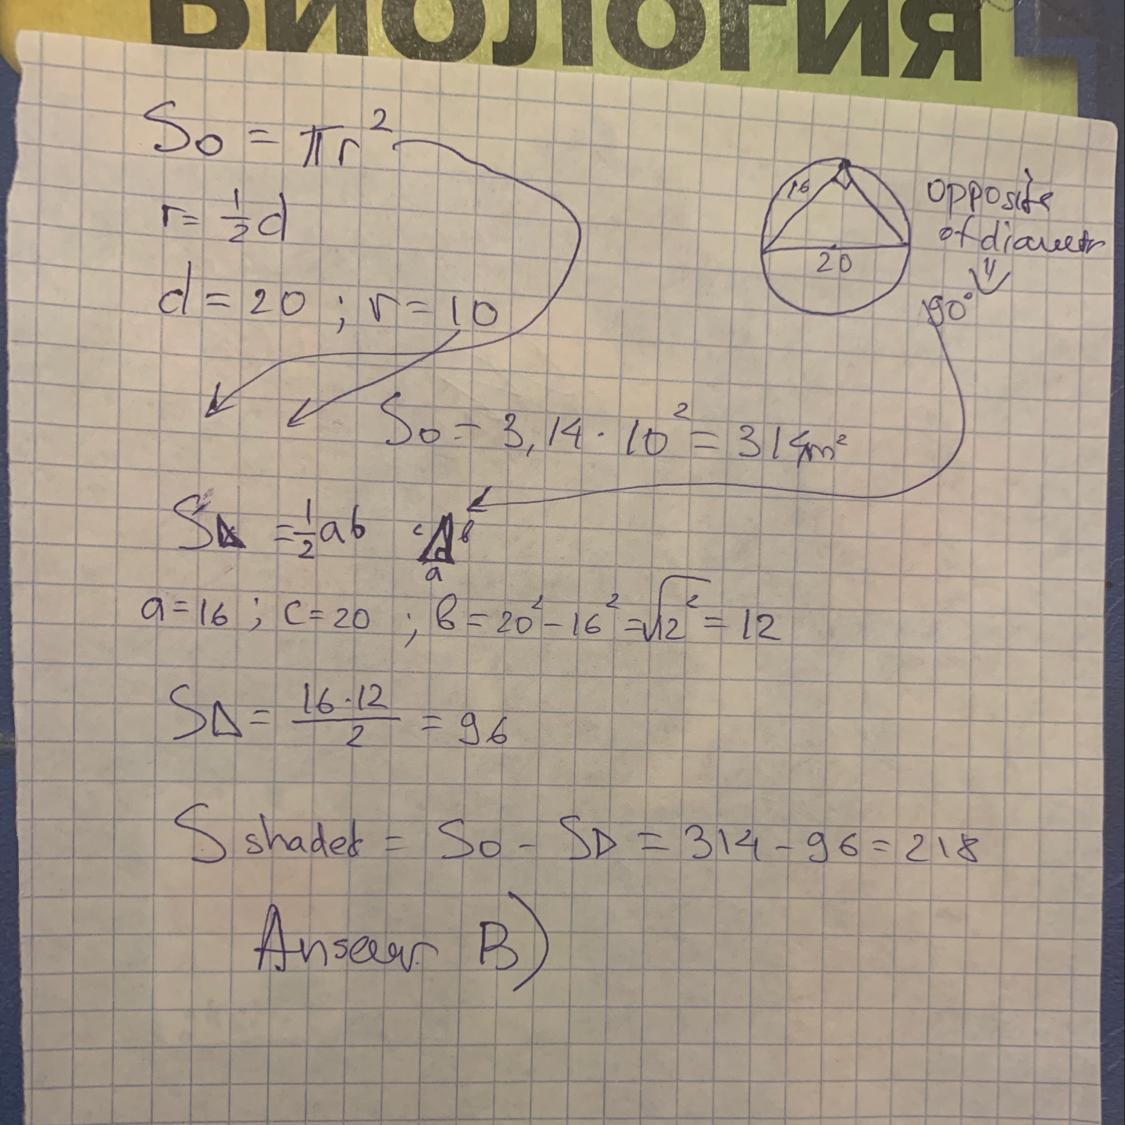 БИОЛОГИЯ
So = πr²
r = 1/2 d
d = 20 ; r = 10
16
20
opposite
of diametr
⇓
90°
So = 3,14 · 10² = 314m²
S△ = 1/2 ab
c
b
a
a = 16 ; c = 20 ; b = 20² - 16² = √12² = 12
S△ = 16 · 12 / 2 = 96
S shaded = So - S△ = 314 - 96 = 218
Answer B)